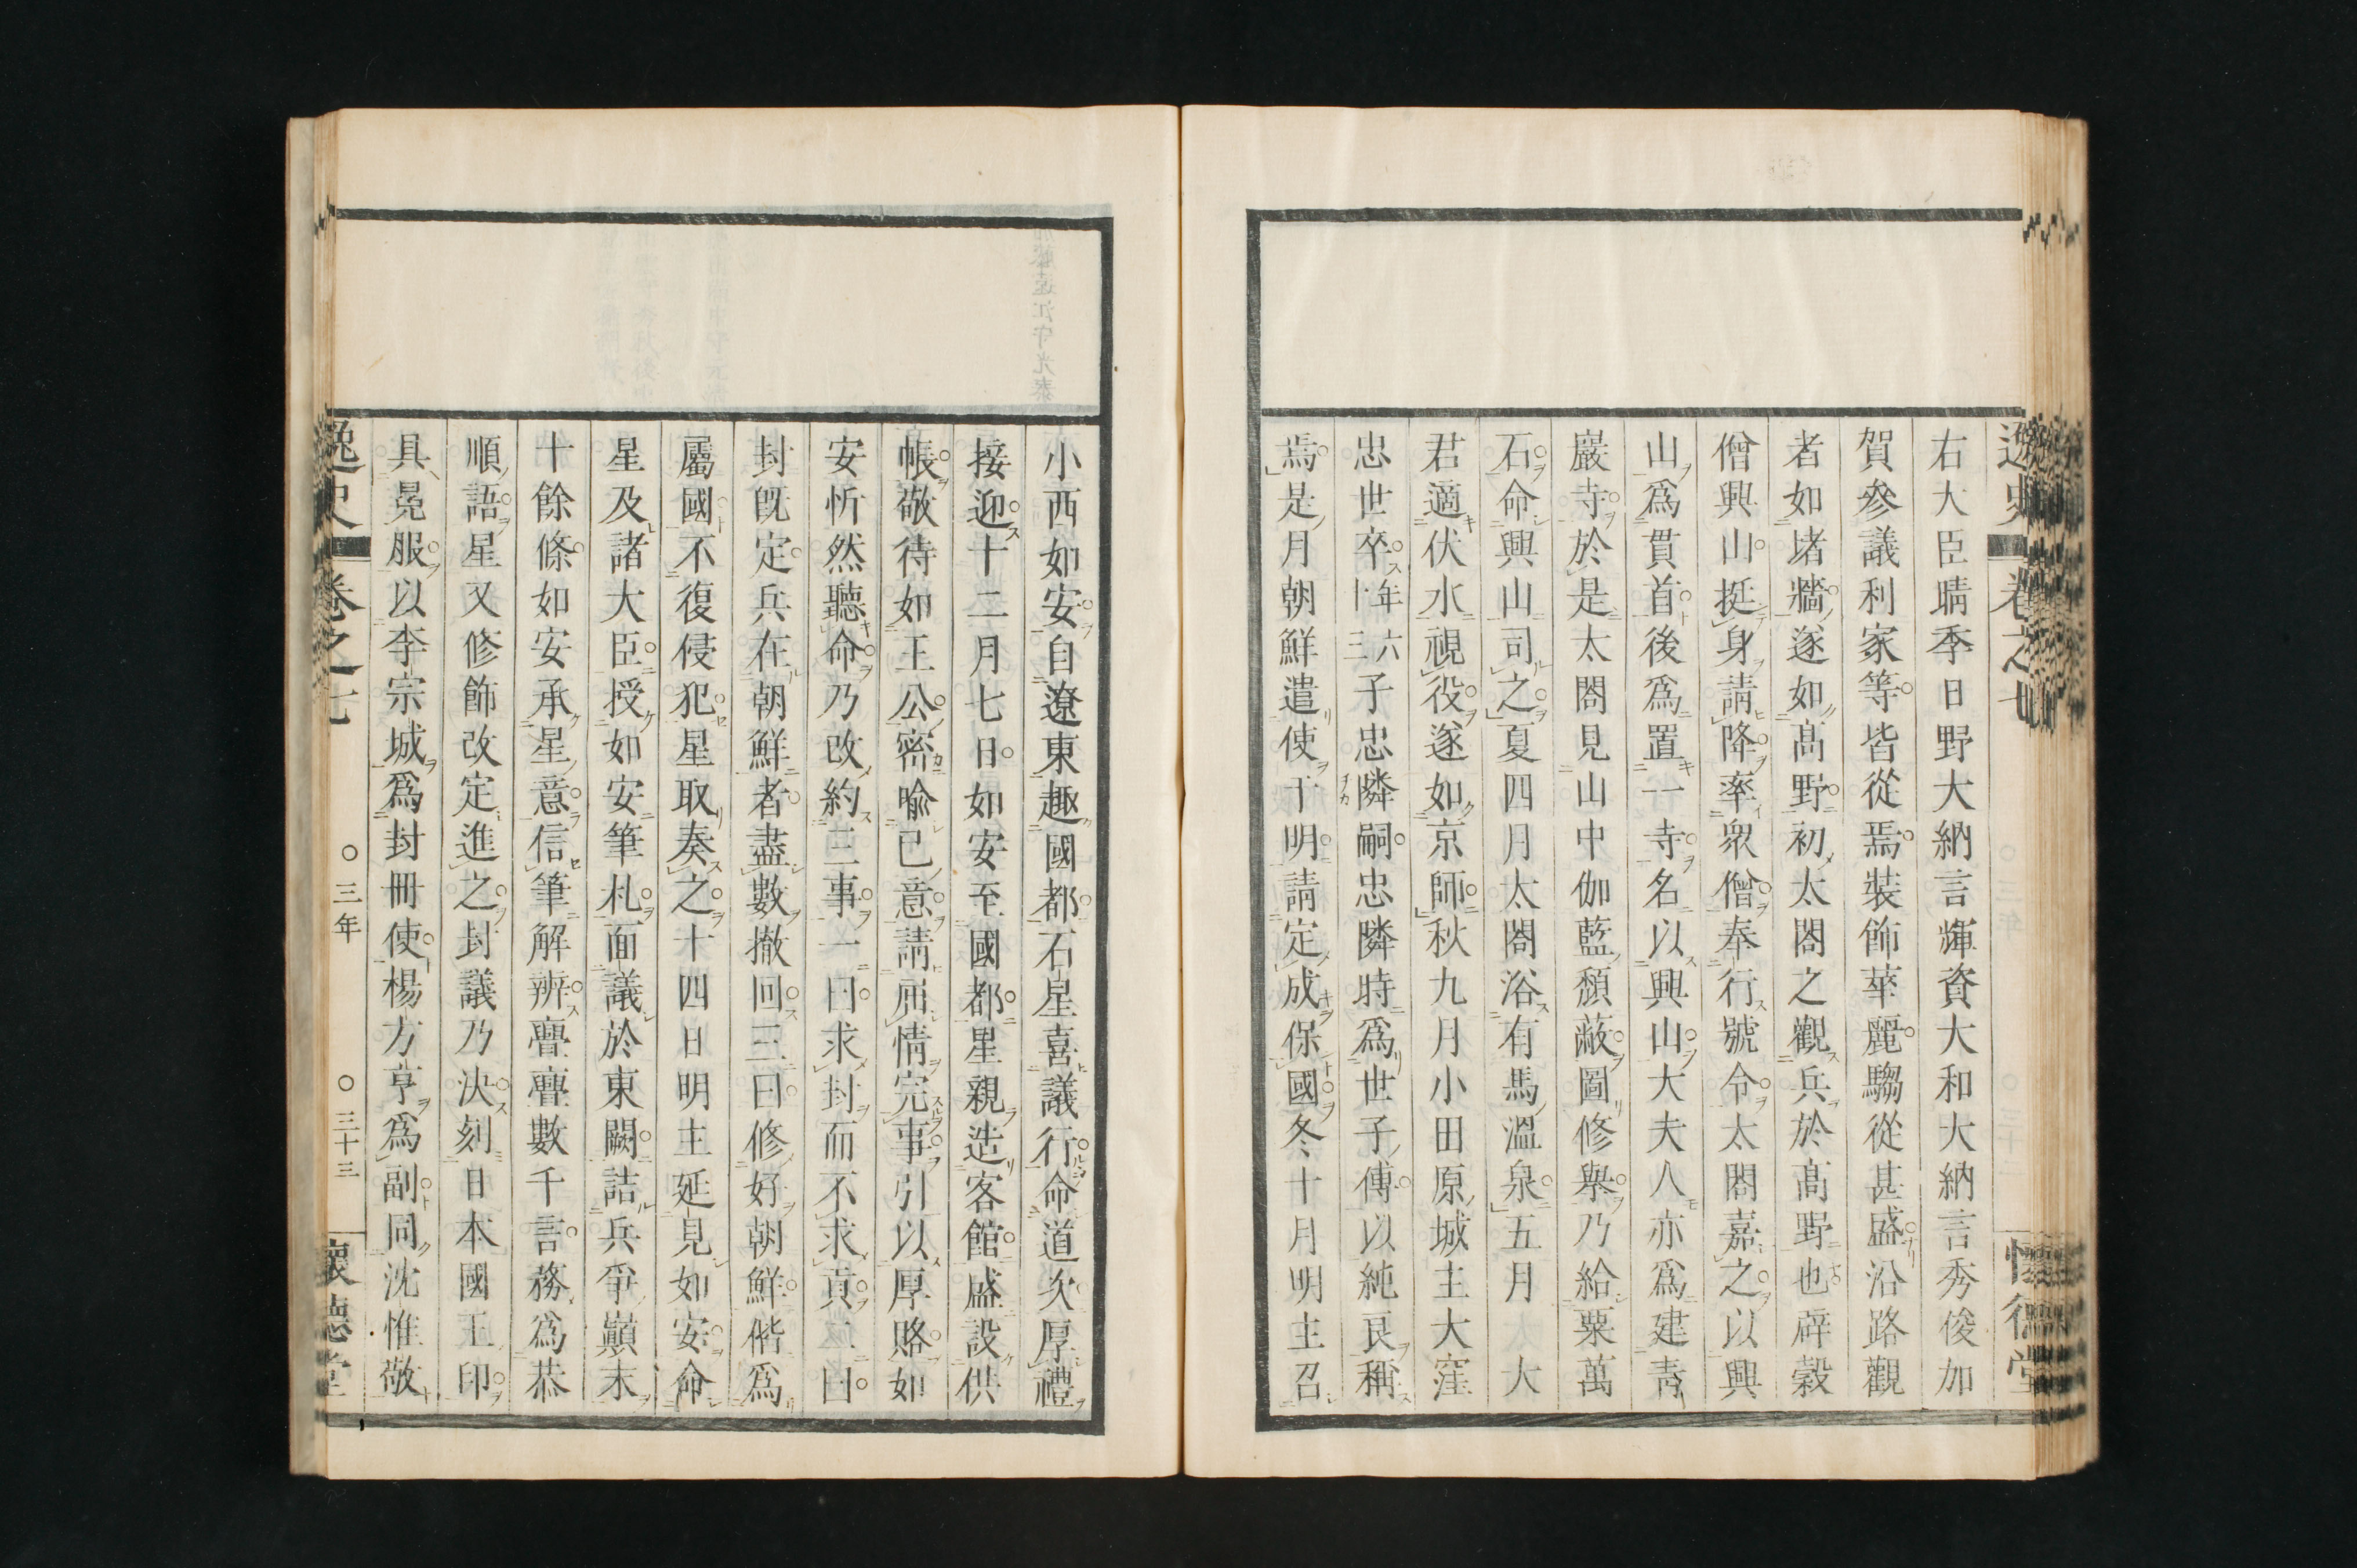 右大臣晴季日野大納言輝資大和大納言秀俊加
賀參議利家等皆從焉裝飾華麗騶從甚盛沿路觀
者如堵牆遂如髙野初太閤之觀兵於髙野也辟穀
僧興山挺身請降率衆僧奉行號令太閤嘉之以興
山爲貫首後爲置一寺名以興山大夫人亦爲建青
巖寺於是太閤見山中伽藍頽蔽圖修擧乃給粟萬
石命興山司之夏四月太閤浴有馬溫泉五月大
君適伏水視役遂如京師秋九月小田原城主大窪
忠世卒年六十三子忠隣嗣忠隣時爲世子傅以純良稱
焉是月朝鮮遣使于明請定成保國冬十月明主召
小西如安自遼東趣國都石星喜議行命道次厚禮
接迎十二月七日如安至國都星親造客館盛設供
帳敬待如王公密喩已意請屈情完事引以厚賂如
安忻然聽命乃改約三事一曰求封而不求貢二曰
封旣定兵在朝鮮者盡數撤回三曰修好朝鮮偕爲
屬國不復侵犯星取奏之十四日明主延見如安命
星及諸大臣授如安筆札面議於東闕詰兵爭巓末
十餘條如安承星意信筆解辨亹亹數千言務爲恭
順語星又修飾改定進之封議乃決刻日本國王印
具冕服以李宗城爲封冊使楊方亨爲副同沈惟敬
逸史 卷之七 〇三年 〇三十三 懷德堂